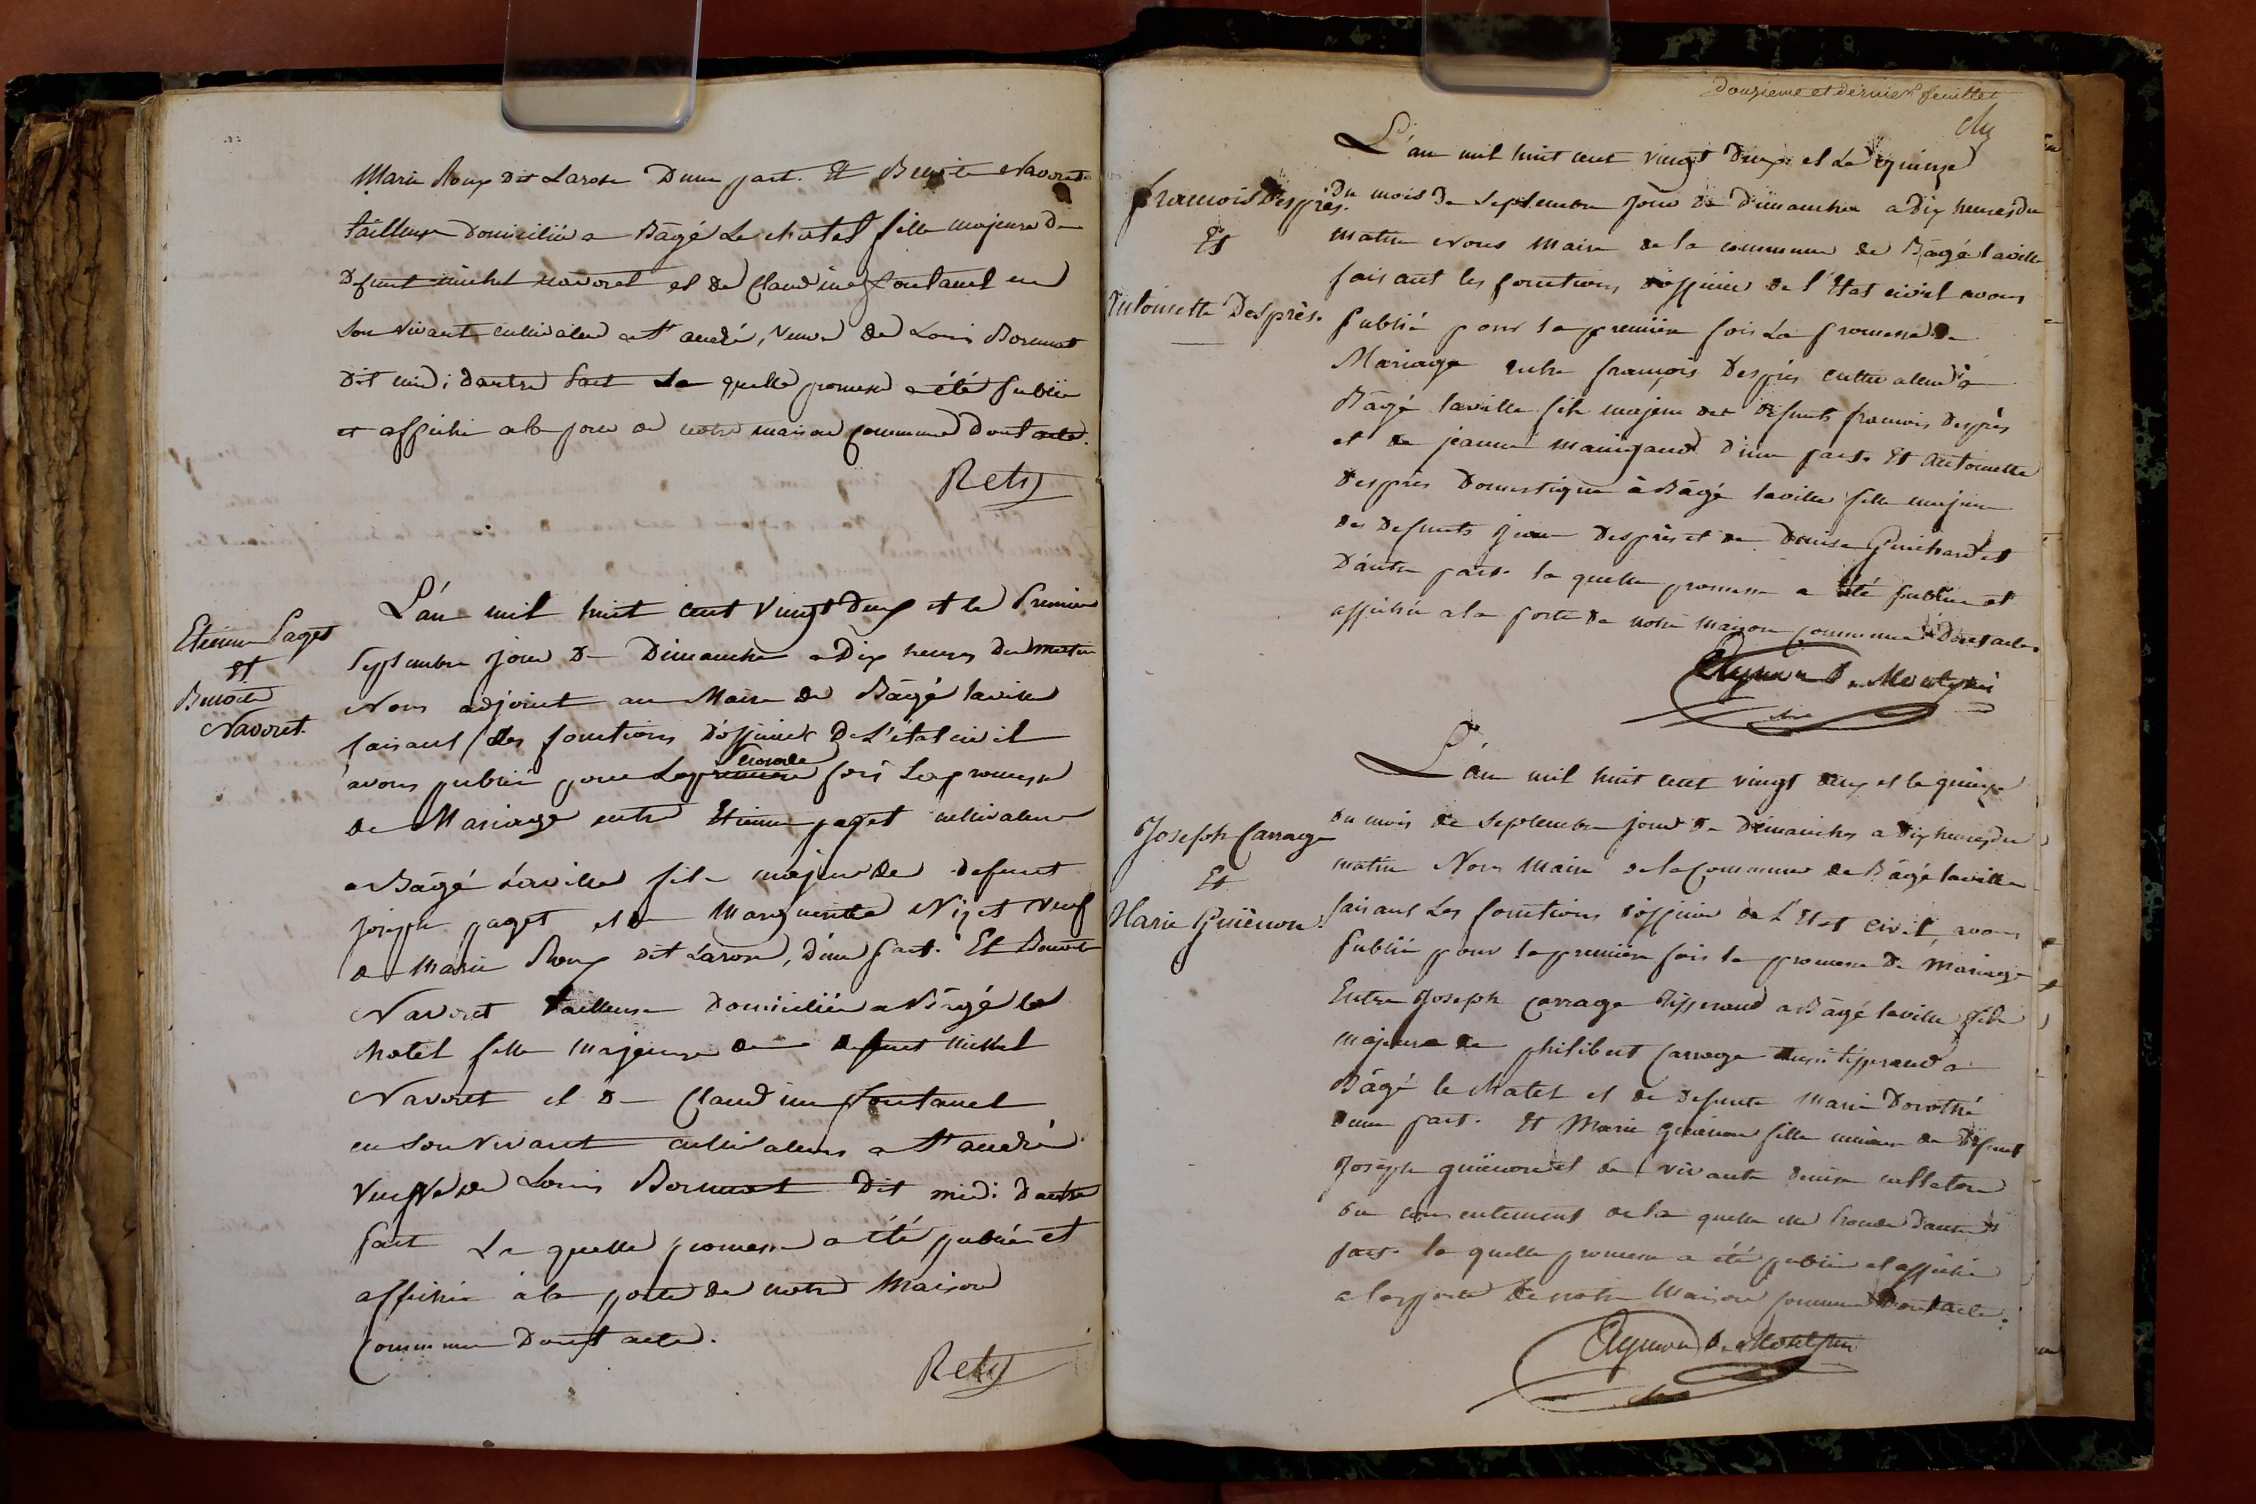 Marie Roux dit Larose D'une part. Et Benoite Navoret
tailleuse Domiciliée a Bâgé Le chatel fille majeure de
Defunt michel navoret et de Claudine fontanel en
Son vivant cultivateur a St andré, Veuve de Louis
Dit midi; dautre part La quelle promesse a été publiée
et affichée a la porte de notre maison commune dont acte.
Rety
Etienne Paget
et
Benoite
Navoret.
L'an mil huit cent vingt Deux et le Premier
Septembre jour De Dimanche a Dix heures du matin
Nous adjoint au Maire de Bâgé laville
faisant les fonctions d'officier De L'état civil
seconde
avons publié pour La premiere fois La promesse
de Mariage entre Etienne paget cultivateur
a Bâgé Laville fils majeur de defunt
joseph paget et de Marguerite Nizet veuf
de Marie Roux dit Larose, d'une part. Et Benoite
Navoret tailleuse Domiciliée a Bâgé le
chatel fille majeure de defunt Michel
Navoret et De Claudine fontanel
en Son vivant cultivateur a St andré
veuve de Louis Dit midi d'autre
part La quelle promesse a été publiée et
affichée à la porte de notre Maison
Commune Dont acte.
Rety
Douzieme et dernier feuillet
L'an mil huit cent vingt Deux et Le quinze
françois Desprès.
Et
Antoinette Desprès.
du mois De Septembre Jour de Dimanche a Dix heures du
matin Nous Maire de la commune de Bâgé laville
faisant les fonctions d'officier de l'Etat civil avons
Publié pour la premiere fois La promesse De
Mariage entre françois Desprès cultivateur à
Bâgé laville fils majeur des defunts francois Desprès
et de jeanne d'une part. Et Antoinette
Desprès Domestique à Bâgé laville fille majeure
des Defunts Desprès et de Denise
D'autre part. la quelle promesse a été publiée et
affichée a la porte de notre maison commune Dont acte.
Aymon De Montepin
L'an mil huit cent vingt deux et le quinze
Joseph Carrage
Et
Marie Guienon.
du mois de Septembre jour De Dimanche a Dix heures du
matin Nous Maire de la Commune de Bâgé laville
faisant Les fonctions d'officier de L'Etat Civil, avons
Publié pour la premiere fois la promesse De Mariage
Entre Joseph Carrage Tisserand a Bâgé laville fils
majeur de philibert Carrage aussi tisserand a
Bâgé le Chatel et de Defunte Marie Dorothé
d'une part. Et Marie guienon fille mineure de Defunt
Joseph guienon et de vivante denise
du consentement de la quelle elle procede D'autre
part. la quelle promesse a été publiée et affichée
a la porte de notre Maison commune Dont acte.
Aymon De Montepin